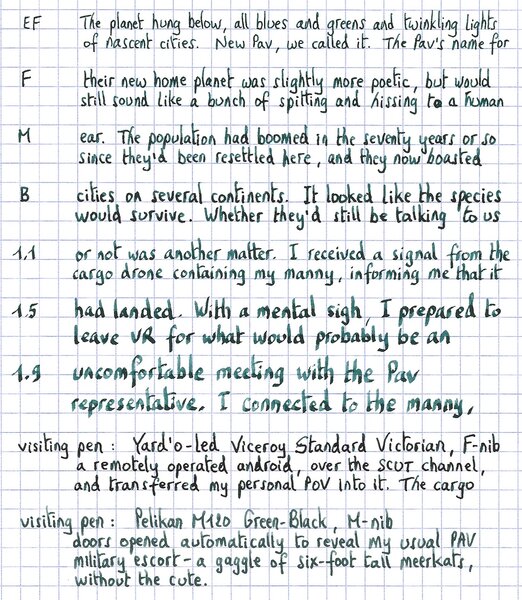 EF The planet hung below, all blues and greens and twinkling lights
of nascent cities. New Pav, we called it. The Pav's name for
F their new home planet was slightly more poetic, but would
still sound like a bunch of spitting and hissing to a human
M ear. The population had boomed in the seventy years or so
since they'd been resettled here, and they now boasted
B cities on several continents. It looked like the species
would survive. Whether they'd still be talking to us
1.1 or not was another matter. I received a signal from the
cargo drone containing my manny, informing me that it
1.5 had landed. With a mental sigh, I prepared to
leave VR for what would probably be an
1.9 uncomfortable meeting with the Pav
representative. I connected to the manny,
visiting pen : Yard'o-led Viceroy Standard Victorian, F-nib
a remotely operated android, over the SCUT channel,
and transferred my personal POV into it. The cargo
visiting pen : Pelikan M120 Green-Black, M-nib
doors opened automatically to reveal my usual PAV
military escort - a gaggle of six-foot tall meerkats,
without the cute.